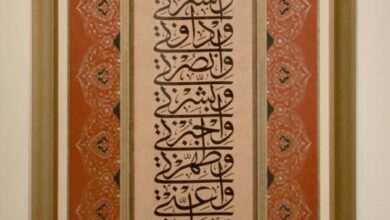 وداوني
وانصرني
وبشرني
واجبرني
وطهرني
واعني